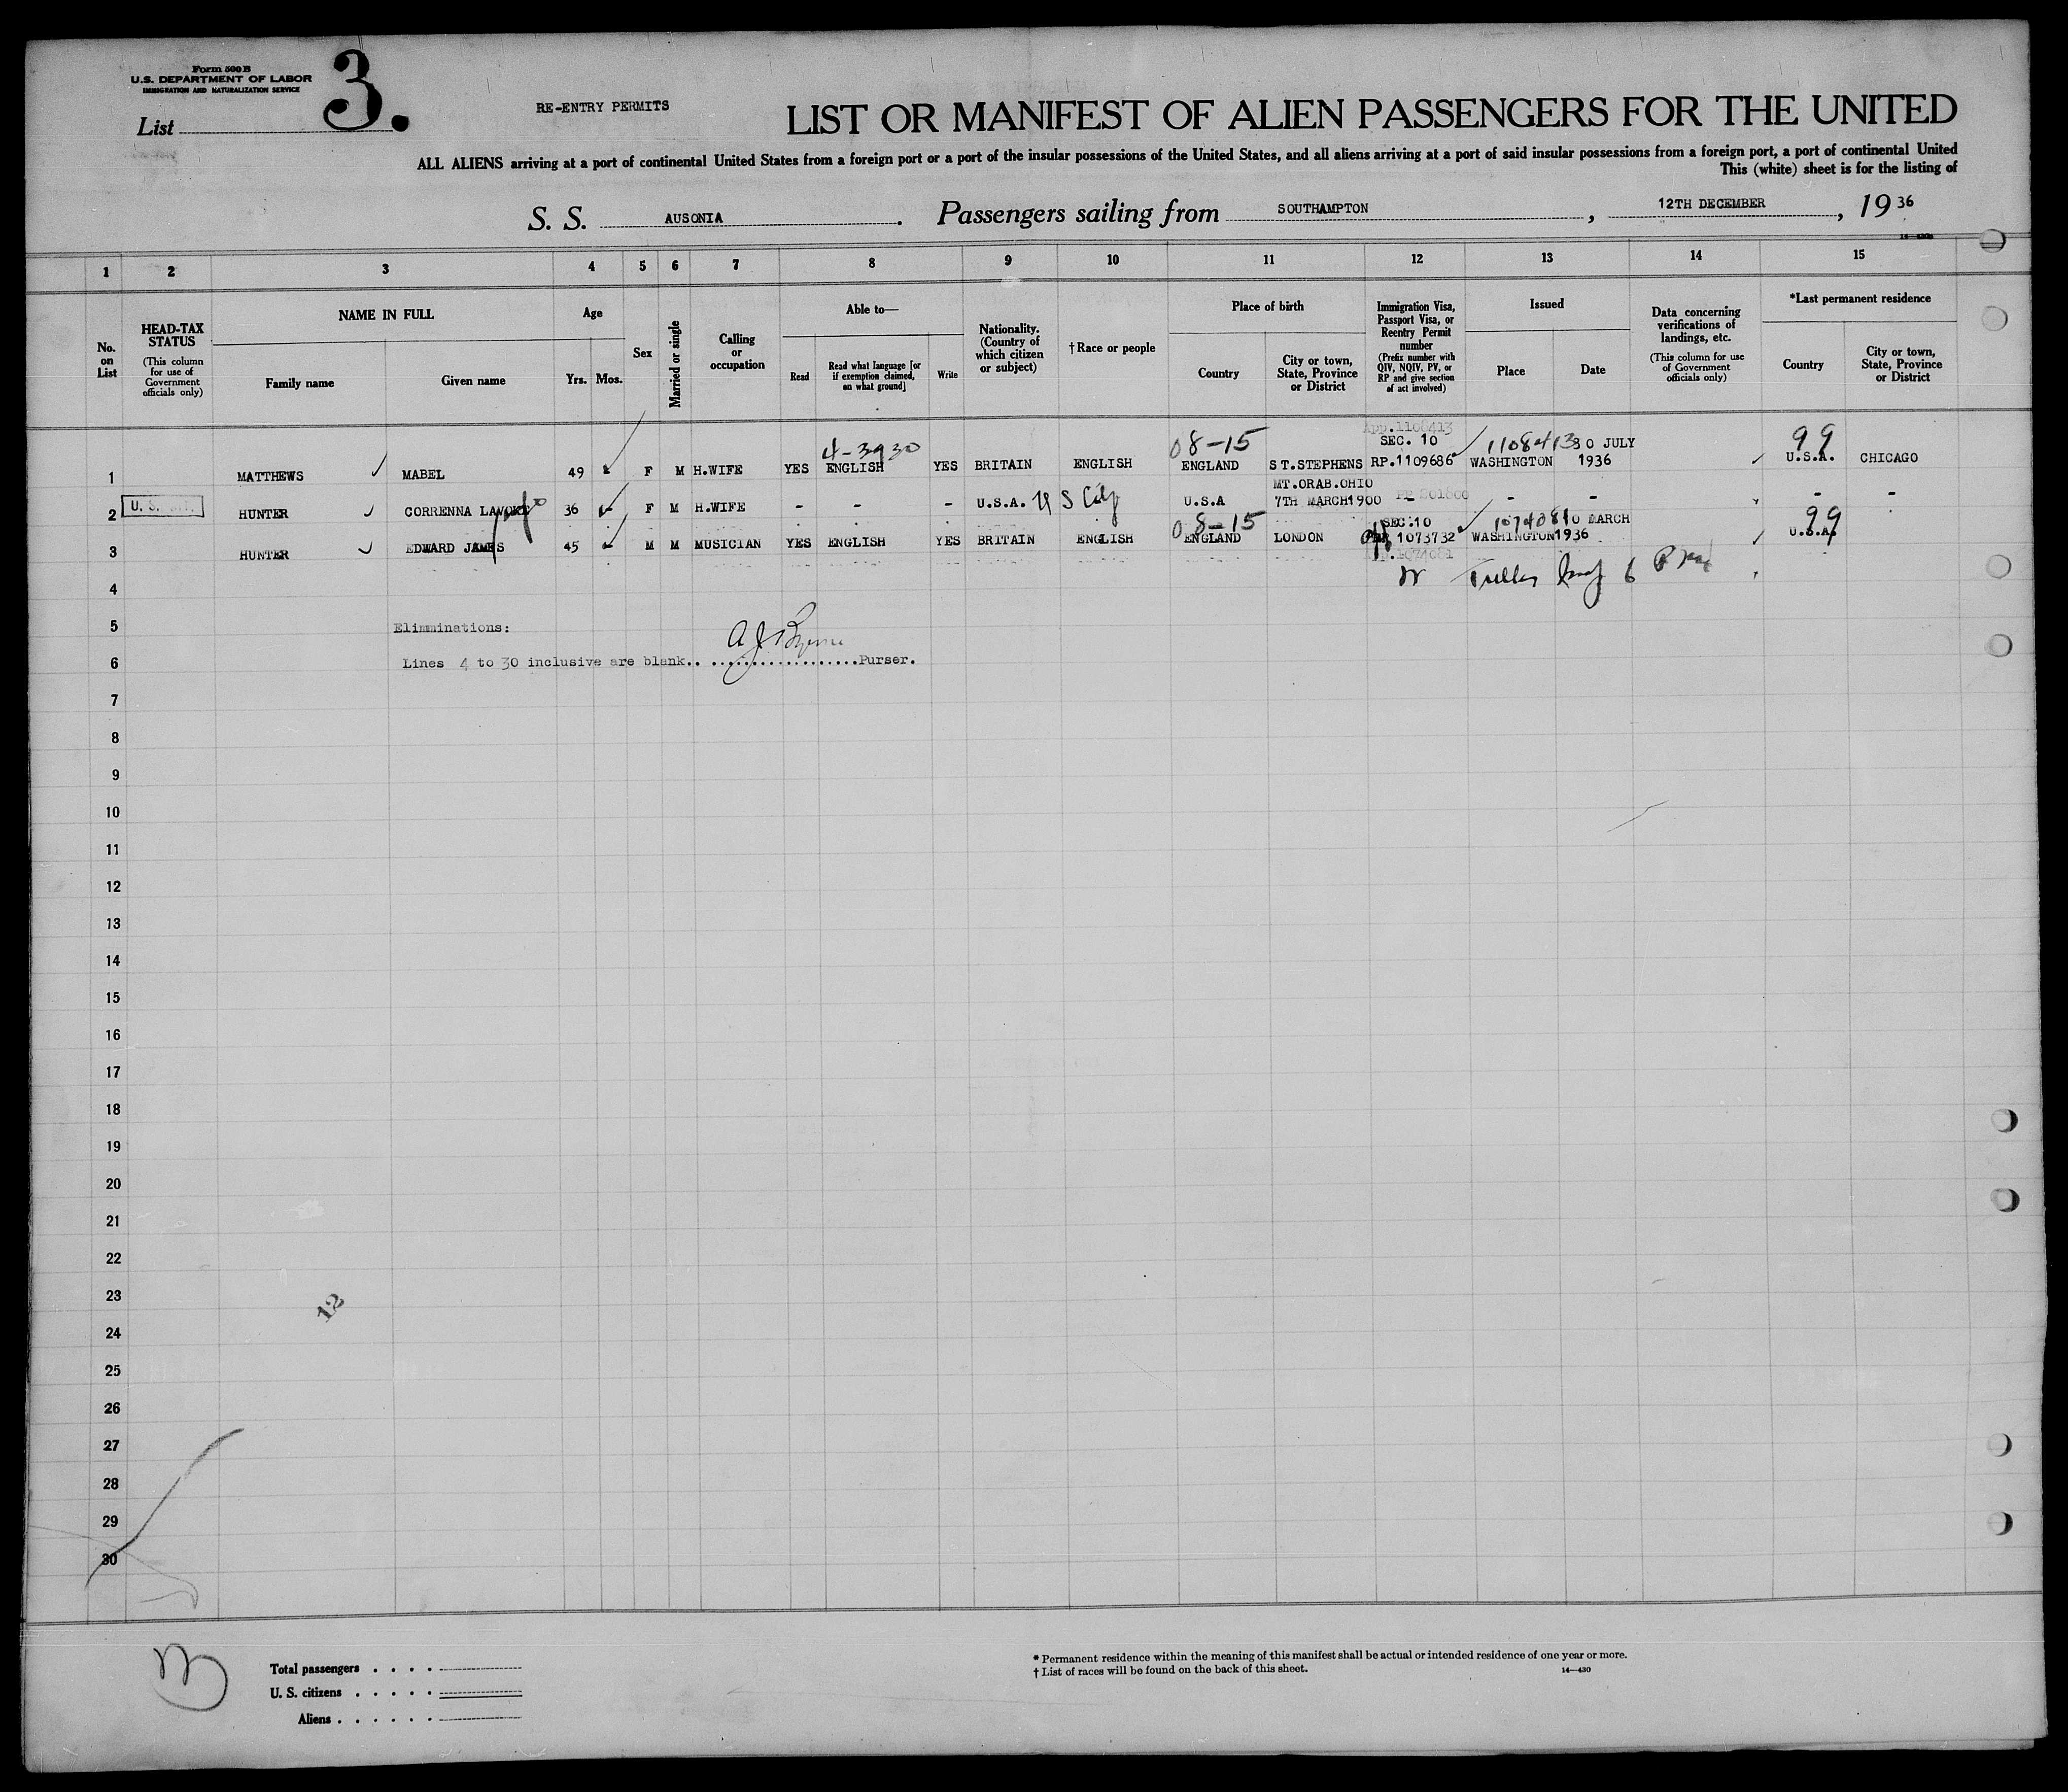 Form 500 B
U.S. DEPARTMENT OF LABOR
IMMIGRATION AND NATURALIZATION SERVICE
List 3.
RE-ENTRY PERMITS
LIST OR MANIFEST OF ALIEN PASSENGERS FOR THE UNITED
ALL ALIENS arriving at a port of continental United States from a foreign port or a port of the insular possessions of the United States, and all aliens arriving at a port of said insular possessions from a foreign port, a port of continental United
This (white) sheet is for the listing of
S. S. AUSONIA. Passengers sailing from SOUTHAMPTON, 12TH DECEMBER, 19 36
1 2 3 4 5 6 7 8 9 10 11 12 13 14 15
No. on List
HEAD-TAX STATUS
(This column for use of Government officials only)
NAME IN FULL
Family name
Given name
Age
Yrs. Mos.
Sex
Married or single
Calling or occupation
Able to—
Read
Read what language [or if exemption claimed, on what ground]
Write
Nationality. (Country of which citizen or subject)
†Race or people
Place of birth
Country
City or town, State, Province or District
Immigration Visa, Passport Visa, or Reentry Permit number
(Prefix number with QIV, NQIV, PV, or RP and give section of act involved)
Issued
Place
Date
Data concerning verifications of landings, etc.
(This column for use of Government officials only)
*Last permanent residence
Country
City or town, State, Province or District
App.1108413
4-3930 08-15 SEC. 10 1108413 30 JULY 99
1 MATTHEWS MABEL 49 F M H.WIFE YES ENGLISH YES BRITAIN ENGLISH ENGLAND ST.STEPHENS RP.1109686 WASHINGTON 1936 U.S.A. CHICAGO
MT.ORAB.OHIO
2 U. S. HUNTER CORRENNA 36 F M H.WIFE - - - U.S.A. U S Citz U.S.A 7TH MARCH1900 - - - - -
08-15 SEC.10 1074081 10 MARCH 99
3 HUNTER EDWARD JAMES 45 M M MUSICIAN YES ENGLISH YES BRITAIN ENGLISH ENGLAND LONDON 1073732 WASHINGTON 1936 U.S.A.
1074081
4
5 Elimminations:
A J Byrne
6 Lines 4 to 30 inclusive are blank.. ...................Purser.
7
8
9
10
11
12
13
14
15
16
17
18
19
20
21
22
23
12
24
25
26
27
28
29
30
Total passengers . . . .
U. S. citizens . . . . .
Aliens . . . . . .
* Permanent residence within the meaning of this manifest shall be actual or intended residence of one year or more.
† List of races will be found on the back of this sheet.
14—430